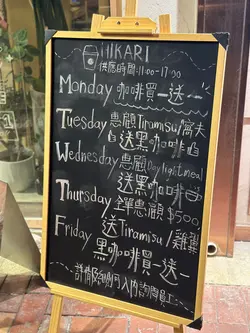 HIKARI
供應時間:11:00-17:00
Monday 咖啡買一送一
Tuesday 惠顧Tiramisu/窩夫
送黑咖啡
Wednesday 惠顧Daylight meal
送黑咖啡
Thursday 全單惠顧 $500,
Friday 送Tiramisu/雞翼
黑咖啡買一送一
詳情請